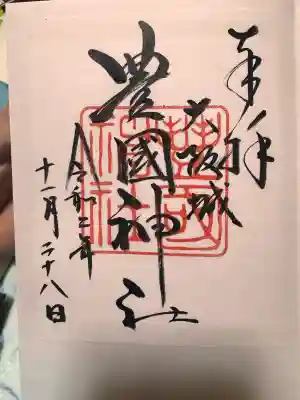 奉拝
大阪城
豊國神社
令和二年
十一月二十八日